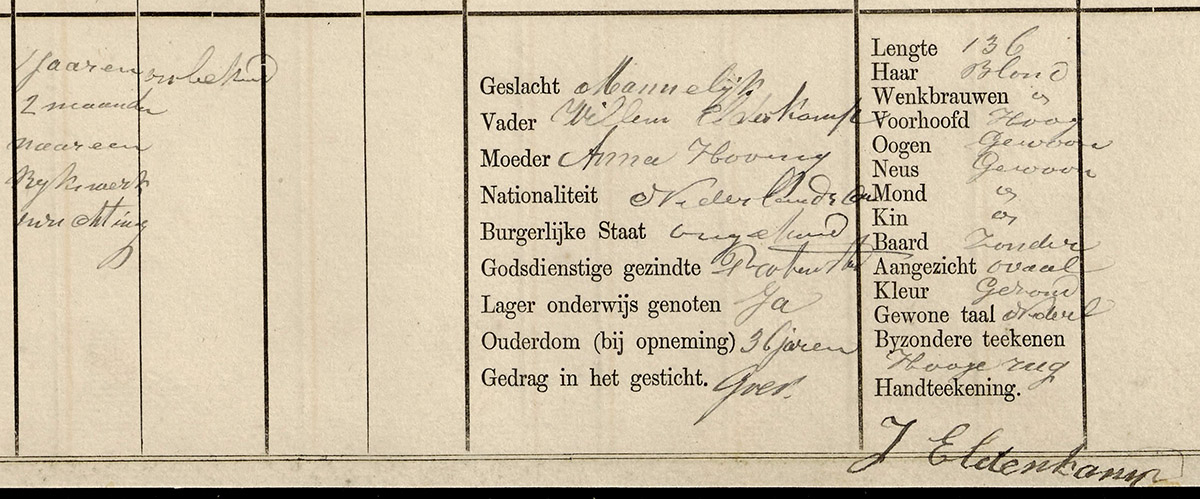 jaaren onbekend
2 maanden
naar een
Rykswerk
inrichting
Geslacht Mannelijk
Vader Willem Eldenkamp
Moeder Anna Hoving
Nationaliteit Nederlandsch
Burgerlijke Staat ongehuwd
Godsdienstige gezindte Protestant
Lager onderwijs genoten Ja
Ouderdom (bij opneming) 36 jaren
Gedrag in het gesticht. Goed.
Lengte 136
Haar Blond
Wenkbrauwen "
Voorhoofd Hoog
Oogen Gewoon
Neus Gewoon
Mond "
Kin "
Baard Zonder
Aangezicht ovaal
Kleur Gezond
Gewone taal Nederl
Byzondere teekenen
Hooge rug
Handteekening.
J Eldenkamp